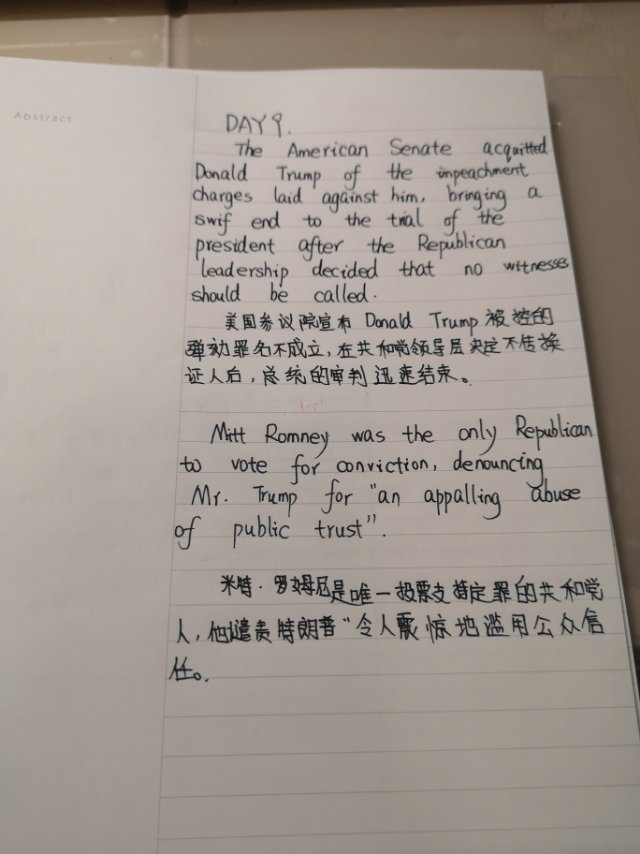 Abstract
DAY 9.
The American Senate acquitted
Donald Trump of the impeachment
charges laid against him, bringing a
swif end to the trial of the
president after the Republican
leadership decided that no witnesses
should be called.
美国参议院宣布 Donald Trump 被控的
弹劾罪名不成立,在共和党领导层决定不传唤
证人后,总统的审判迅速结束。
Mitt Romney was the only Republican
to vote for conviction, denouncing
Mr. Trump for "an appalling abuse
of public trust".
米特·罗姆尼是唯一投票支持定罪的共和党
人,他谴责特朗普"令人震惊地滥用公众信
任。